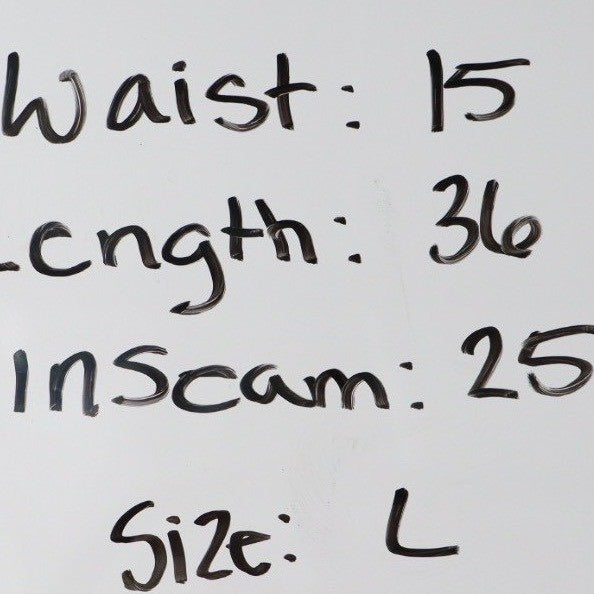 Waist: 15
Length: 36
inseam: 25
Size: L